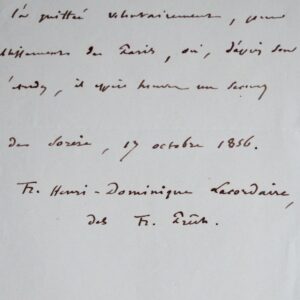 l'a quitté volontairement, pour
de Paris, où, depuis son
il espère trouver un secours
de Sorèze, 17 octobre 1856.
Fr. Henri-Dominique Lacordaire,
des Fr. Prêch.